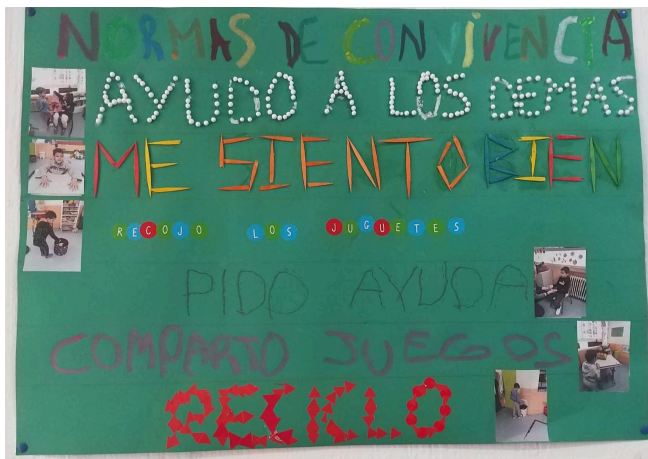 NORMAS DE CONVIVENCIA
AYUDO A LOS DEMAS
ME SIENTO BIEN
RECOJO LOS JUGUETES
PIDO AYUDA
COMPARTO JUEGOS
RECICLO